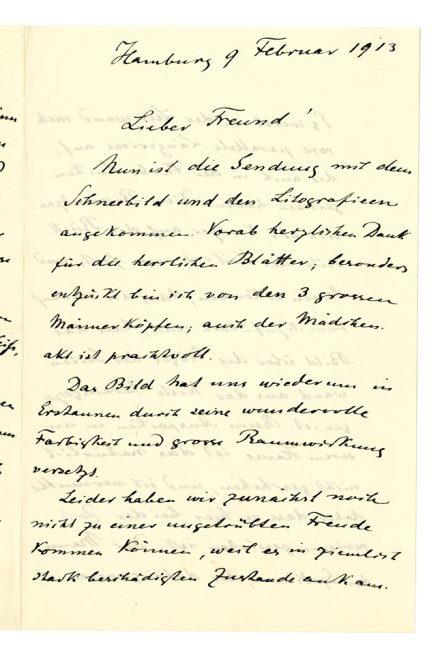 Hamburg 9 Februar 1913
Lieber Freund!
Nun ist die Sendung mit dem
Schneebild und den Litografieen
angekommen. Vorab herzlichen Dank
für die herrlichen Blätter, besonders
entzückt bin ich von den 3 grossen
Männerköpfen; auch der Mädchen-
akt ist prachtvoll.
Das Bild hat uns wiederum in
Erstaunen durch seine wundervolle
Farbigkeit und grosse Raumwirkung
versetzt.
Leider haben wir zunächst noch
nicht zu einer ungetrübten Freude
kommen können, weil es in ziemlich
stark beschädigten Zustande ankam.